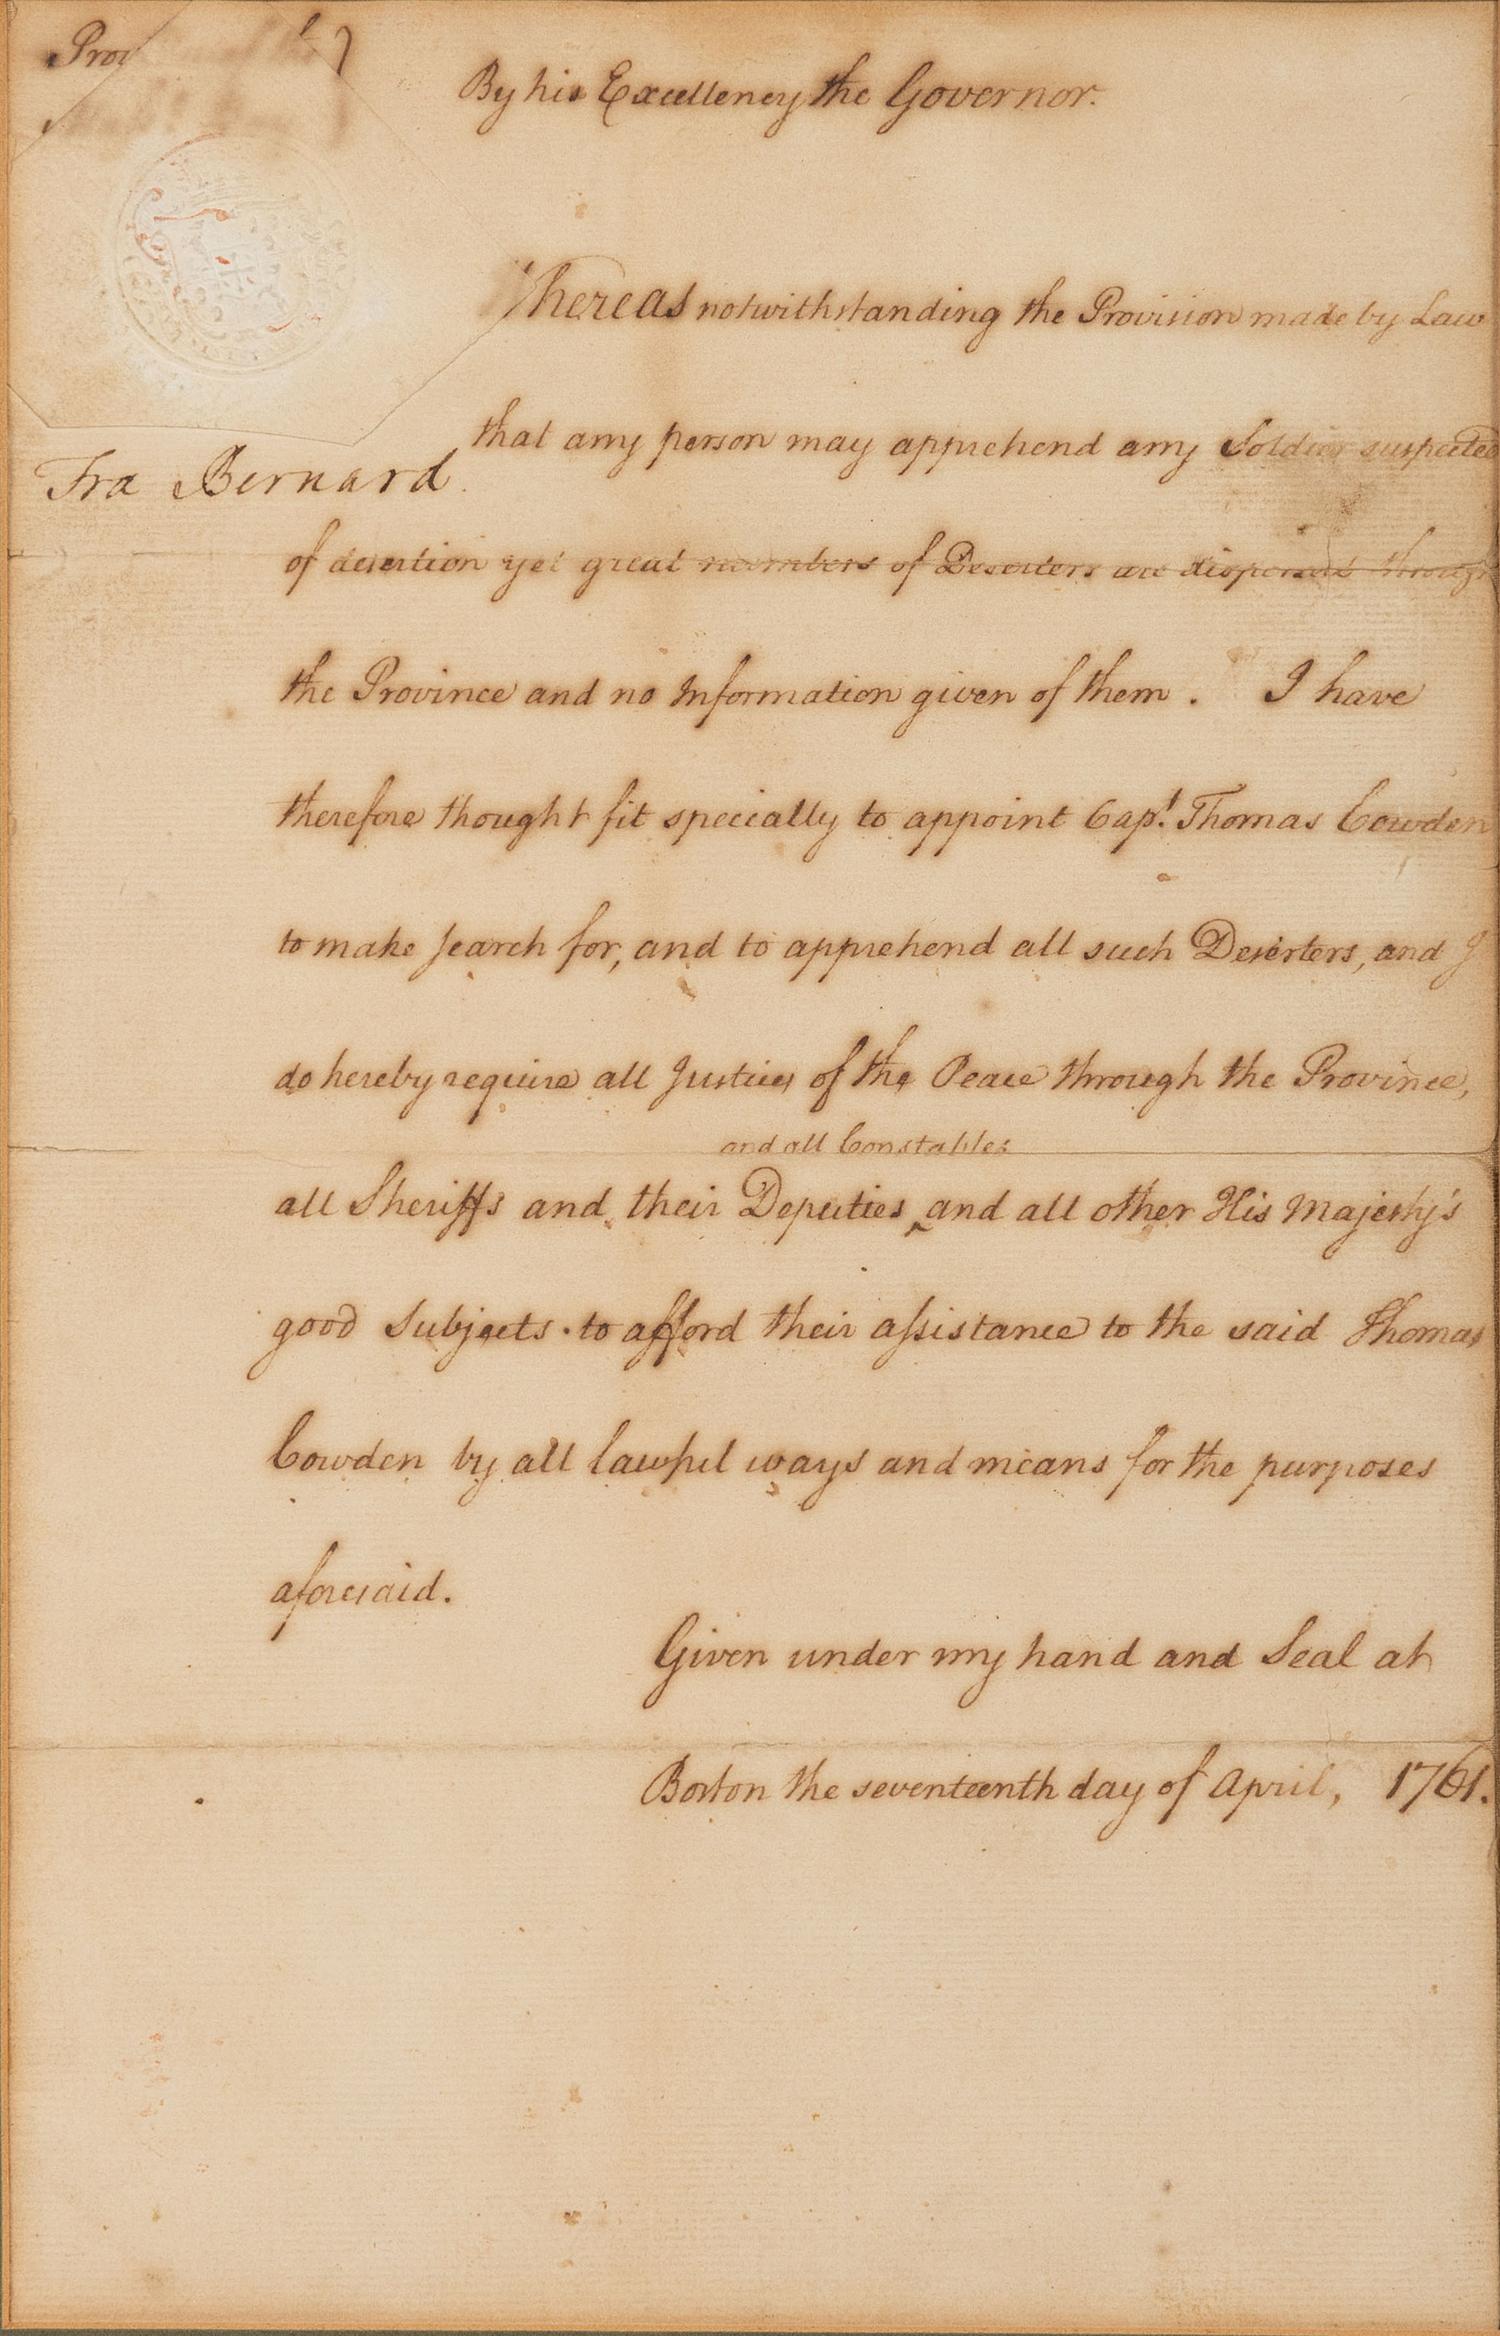 Prov
By his Excellency the Governor.
Whereas notwithstanding the Provision made by Law
that any person may apprehend any Soldier suspected
Fra Bernard
of desertion yet great numbers of Deserters are dispersed through
the Province and no Information given of them. I have
therefore thought fit specially to appoint Capt. Thomas Cowden
to make search for, and to apprehend all such Deserters, and I
do hereby require all Justices of the Peace through the Province,
and all Constables
all Sheriffs and their Deputies ‸ and all other His Majesty's
good Subjects. to afford their assistance to the said Thomas
Cowden by all lawful ways and means for the purposes
aforesaid.
Given under my hand and Seal at
Boston the seventeenth day of April, 1761.